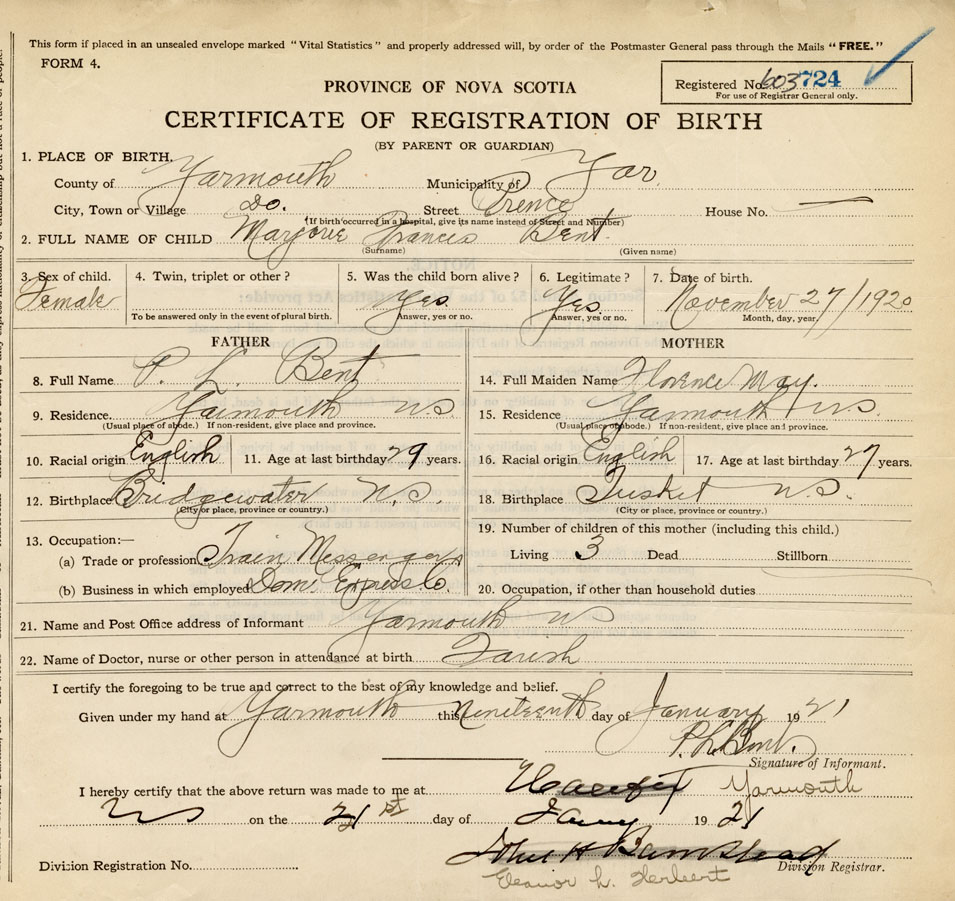 This form if placed in an unsealed envelope marked "Vital Statistics" and properly addressed will, by order of the Postmaster General pass through the Mails "FREE."
FORM 4.
Registered No. 603724
For use of Registrar General only.
PROVINCE OF NOVA SCOTIA
CERTIFICATE OF REGISTRATION OF BIRTH
(BY PARENT OR GUARDIAN)
1. PLACE OF BIRTH.
County of Yarmouth Municipality of Yar.
City, Town or Village Do. Street Prence House No. —
(If birth occurred in a hospital, give its name instead of Street and Number)
2. FULL NAME OF CHILD Marjorie Francis Bent.
(Surname) (Given name)
3. Sex of child. 4. Twin, triplet or other? 5. Was the child born alive? 6. Legitimate? 7. Date of birth.
Female Yes. Yes. November 27/1920
To be answered only in the event of plural birth. Answer, yes or no. Answer, yes or no. Month, day, year.
FATHER
8. Full Name P. L. Bent
9. Residence. Yarmouth N.S.
(Usual place of abode.) If non-resident, give place and province.
10. Racial origin English 11. Age at last birthday 29 years.
12. Birthplace Bridgewater N.S.
(City or place, province or country.)
13. Occupation:—
(a) Trade or profession Train Messenger
(b) Business in which employed Dom. Express Co.
MOTHER
14. Full Maiden Name Florence May.
15. Residence Yarmouth N.S.
(Usual place of abode.) If non-resident, give place and province.
16. Racial origin English 17. Age at last birthday 27 years.
18. Birthplace Tusket N.S.
(City or place, province or country.)
19. Number of children of this mother (including this child.)
Living 3 Dead Stillborn
20. Occupation, if other than household duties
21. Name and Post Office address of Informant Yarmouth NS
22. Name of Doctor, nurse or other person in attendance at birth Farish
I certify the foregoing to be true and correct to the best of my knowledge and belief.
Given under my hand at Yarmouth this Nineteenth day of January 1921
P. L. Bent.
Signature of Informant.
I hereby certify that the above return was made to me at Halifax Yarmouth
NS on the 21st day of Jany 1921
John H Barnstead
Division Registration No. Division Registrar.
Eleanor L. Herbert